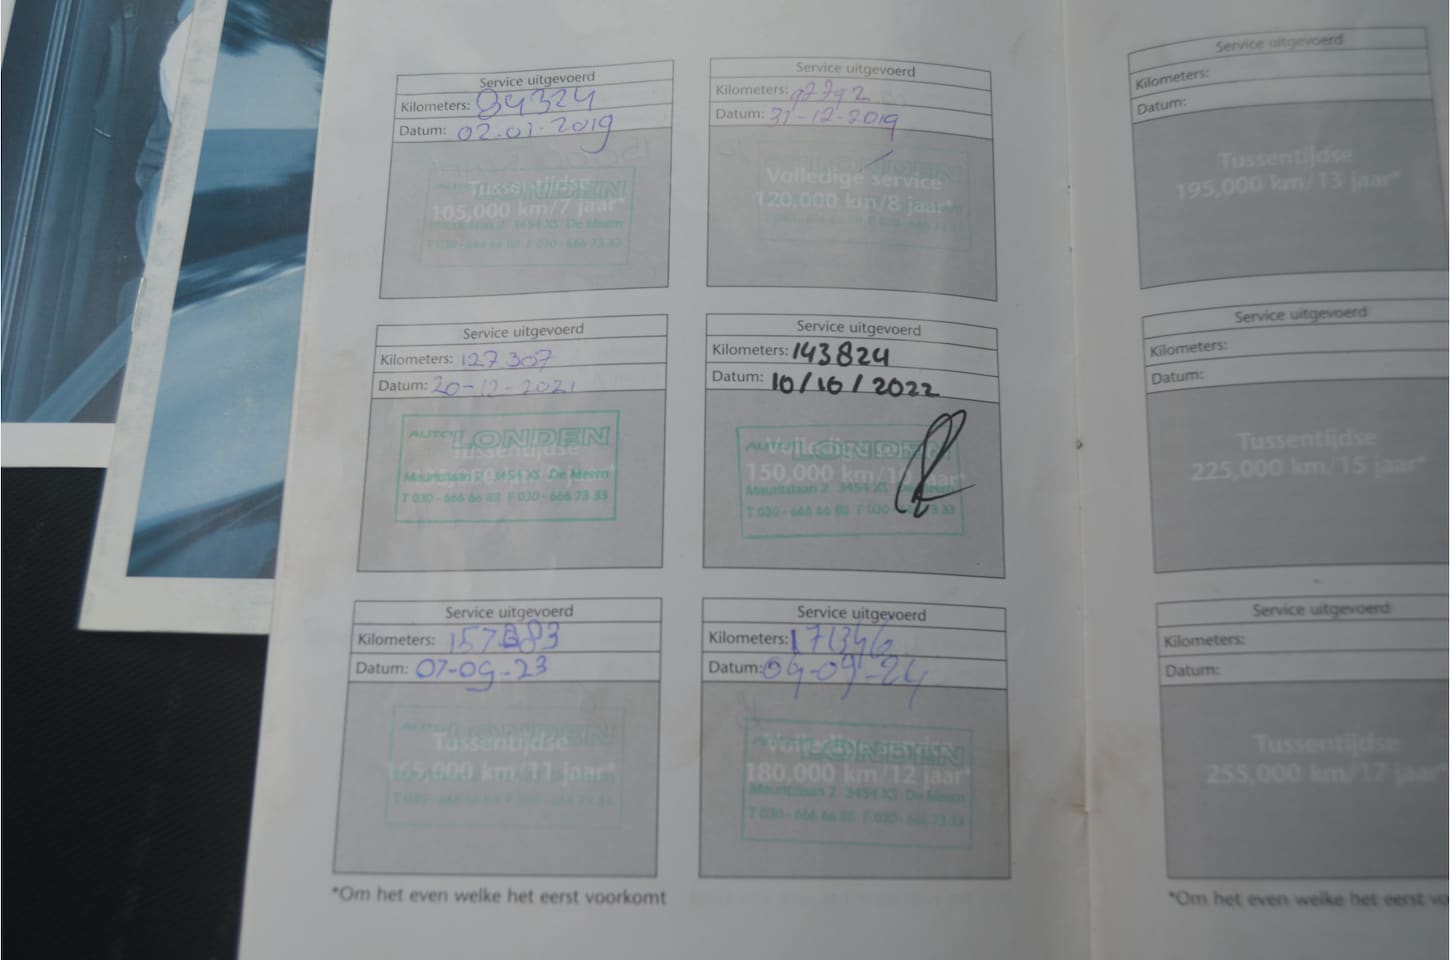 Service uitgevoerd
Kilometers: 94324
Datum: 02-01-2019
Tussentijdse
105,000 km/7 jaar*
AUTO LONDEN
Mauritslaan 2 3454 XS De Meern
T 030 - 666 66 88 F 030 - 666 73 33
Service uitgevoerd
Kilometers: 97792
Datum: 31-12-2019
Volledige service
120,000 km/8 jaar*
Service uitgevoerd
Kilometers: 127307
Datum: 20-12-2021
Tussentijdse
AUTO LONDEN
Mauritslaan 2 3454 XS De Meern
T 030 - 666 66 88 F 030 - 666 73 33
Service uitgevoerd
Kilometers: 143824
Datum: 10/10/2022
150,000 km/10 jaar*
AUTO LONDEN
Mauritslaan 2 3454 XS
T 030 - 666 66 88 F 030
Service uitgevoerd
Kilometers: 157883
Datum: 07-09-23
Tussentijdse
165,000 km/11 jaar*
AUTO LONDEN
T 030 - 666 66 88 F 030 - 666 73 33
Service uitgevoerd
Kilometers: 171346
Datum: 04-09-24
Volledige service
180,000 km/12 jaar*
AUTO LONDEN
Mauritslaan 2 3454 XS De Meern
T 030 - 666 66 88 F 030 - 666 73 33
*Om het even welke het eerst voorkomt
Service uitgevoerd
Kilometers:
Datum:
Tussentijdse
195,000 km/13 jaar*
Service uitgevoerd
Kilometers:
Datum:
Tussentijdse
225,000 km/15 jaar*
Service uitgevoerd
Kilometers:
Datum:
Tussentijdse
255,000 km/17 jaar*
*Om het even welke het eerst vo